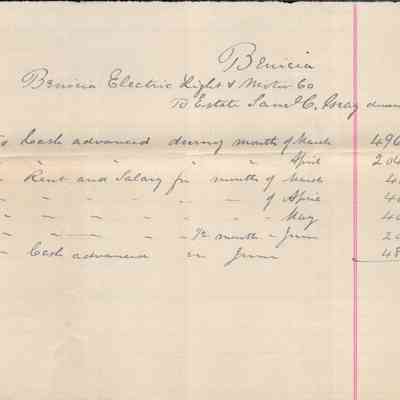 Benicia
Benicia Electric Light & Motor Co
To Estate Saml C. Gray
To Cash advanced during month of March 496
" " " " " April 204
" Rent and Salary for month of March 40
" " " " " of April 40
" " " " " - May 40
" " " " - ½ month - June 20
" Cash advanced in June 48